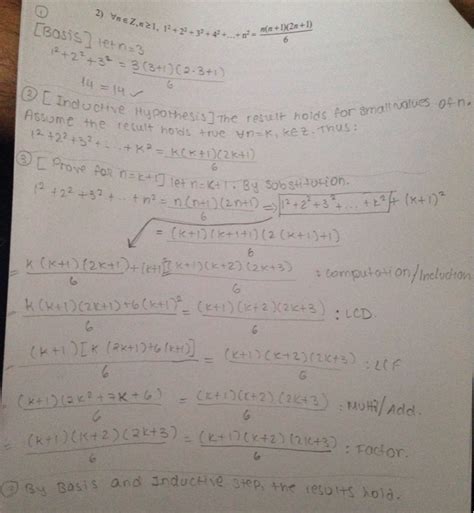 ①
2) ∀n∈Z, n≥1, 1²+2²+3²+4²+…+n² = n(n+1)(2n+1)/6
[Basis] let n=3
1²+2²+3² = 3(3+1)(2·3+1)/6
14 = 14 ✓
② [Inductive Hypothesis] The result holds for small values of n.
Assume the result holds true ∀n=k, k∈Z. Thus:
1²+2²+3²+...+k² = k(k+1)(2k+1)/6
③ [Prove for n=k+1] let n=k+1. By substitution.
1²+2²+3²+...+n² = n(n+1)(2n+1)/6 ⇒ 1²+2²+3²+...+k² + (k+1)²
= (k+1)(k+1+1)(2(k+1)+1)/6
= k(k+1)(2k+1)/6 + (k+1)² (k+1)(k+2)(2k+3)/6 : Computation/
k(k+1)(2k+1)+6(k+1)²/6 = (k+1)(k+2)(2k+3)/6 : LCD.
(k+1)[k(2k+1)+6(k+1)]/6 = (k+1)(k+2)(2k+3)/6
(k+1)(2k²+7k+6)/6 = (k+1)(k+2)(2k+3)/6 : Multi/Add.
= (k+1)(k+2)(2k+3)/6 = (k+1)(k+2)(2k+3)/6 : Factor.
By Basis and Inductive Step, the results hold.